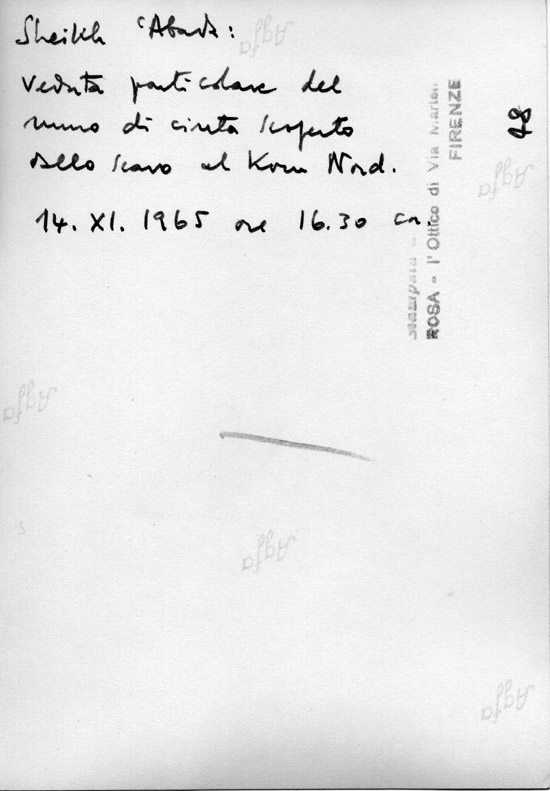 Sheikh ʿAbada:
Veduta particolare del
muro di cinta scoperto
dallo scavo al Kom Nord.
14. XI. 1965 ore 16.30 ca.
Stampata -
ROSA - l'Ottico di Via Martelli
FIRENZE
48
Agfa
Agfa
Agfa
Agfa
Agfa